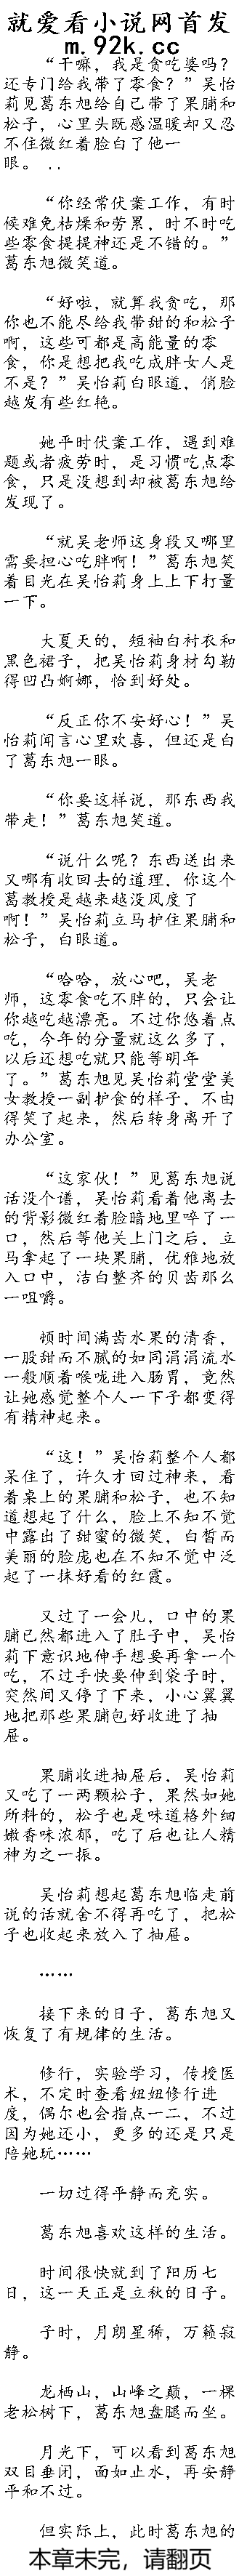 就爱看小说网首发
m.92k.cc
“干嘛，我是贪吃婆吗？
还专门给我带了零食？”吴怡
莉见葛东旭给自己带了果脯和
松子，心里头既感温暖却又忍
不住微红着脸白了他一
眼。 ..
“你经常伏案工作，有时
候难免枯燥和劳累，时不时吃
些零食提提神还是不错的。”
葛东旭微笑道。
“好啦，就算我贪吃，那
你也不能尽给我带甜的和松子
啊，这些可都是高能量的零
食，你是想把我吃成胖女人是
不是？”吴怡莉白眼道，俏脸
越发有些红艳。
她平时伏案工作，遇到难
题或者疲劳时，是习惯吃点零
食，只是没想到却被葛东旭给
发现了。
“就吴老师这身段又哪里
需要担心吃胖啊！”葛东旭笑
着目光在吴怡莉身上上下打量
一下。
大夏天的，短袖白衬衣和
黑色裙子，把吴怡莉身材勾勒
得凹凸婀娜，恰到好处。
“反正你不安好心！”吴
怡莉闻言心里欢喜，但还是白
了葛东旭一眼。
“你要这样说，那东西我
带走！”葛东旭笑道。
“说什么呢？东西送出来
又哪有收回去的道理，你这个
葛教授是越来越没风度了
啊！”吴怡莉立马护住果脯和
松子，白眼道。
“哈哈，放心吧，吴老
师，这零食吃不胖的，只会让
你越吃越漂亮。不过你悠着点
吃，今年的分量就这么多了，
以后还想吃就只能等明年
了。”葛东旭见吴怡莉堂堂美
女教授一副护食的样子，不由
得笑了起来，然后转身离开了
办公室。
“这家伙！”见葛东旭说
话没个谱，吴怡莉看着他离去
的背影微红着脸暗地里啐了一
口，然后等他关上门之后，立
马拿起了一块果脯，优雅地放
入口中，洁白整齐的贝齿那么
一咀嚼。
顿时间满齿水果的清香，
一股甜而不腻的如同涓涓流水
一般顺着喉咙进入肠胃，竟然
让她感觉整个人一下子都变得
有精神起来。
“这！”吴怡莉整个人都
呆住了，许久才回过神来，看
着桌上的果脯和松子，也不知
道想起了什么，脸上不知不觉
中露出了甜蜜的微笑，白皙而
美丽的脸庞也在不知不觉中泛
起了一抹好看的红霞。
又过了一会儿，口中的果
脯已然都进入了肚子中，吴怡
莉下意识地伸手想要再拿一个
吃，不过手快要伸到袋子时，
突然间又停了下来，小心翼翼
地把那些果脯包好收进了抽
屉。
果脯收进抽屉后，吴怡莉
又吃了一两颗松子，果然如她
所料的，松子也是味道格外细
嫩香味浓郁，吃了后也让人精
神为之一振。
吴怡莉想起葛东旭临走前
说的话就舍不得再吃了，把松
子也收起来放入了抽屉。
……
接下来的日子，葛东旭又
恢复了有规律的生活。
修行，实验学习，传授医
术，不定时查看妞妞修行进
度，偶尔也会指点一二，不过
因为她还小，更多的还是只是
陪她玩……
一切过得平静而充实。
葛东旭喜欢这样的生活。
时间很快就到了阳历七
日，这一天正是立秋的日子。
子时，月朗星稀，万籁寂
静。
龙栖山，山峰之巅，一棵
老松树下，葛东旭盘腿而坐。
月光下，可以看到葛东旭
双目垂闭，面如止水，再安静
平和不过。
但实际上，此时葛东旭的
本章未完，请翻页